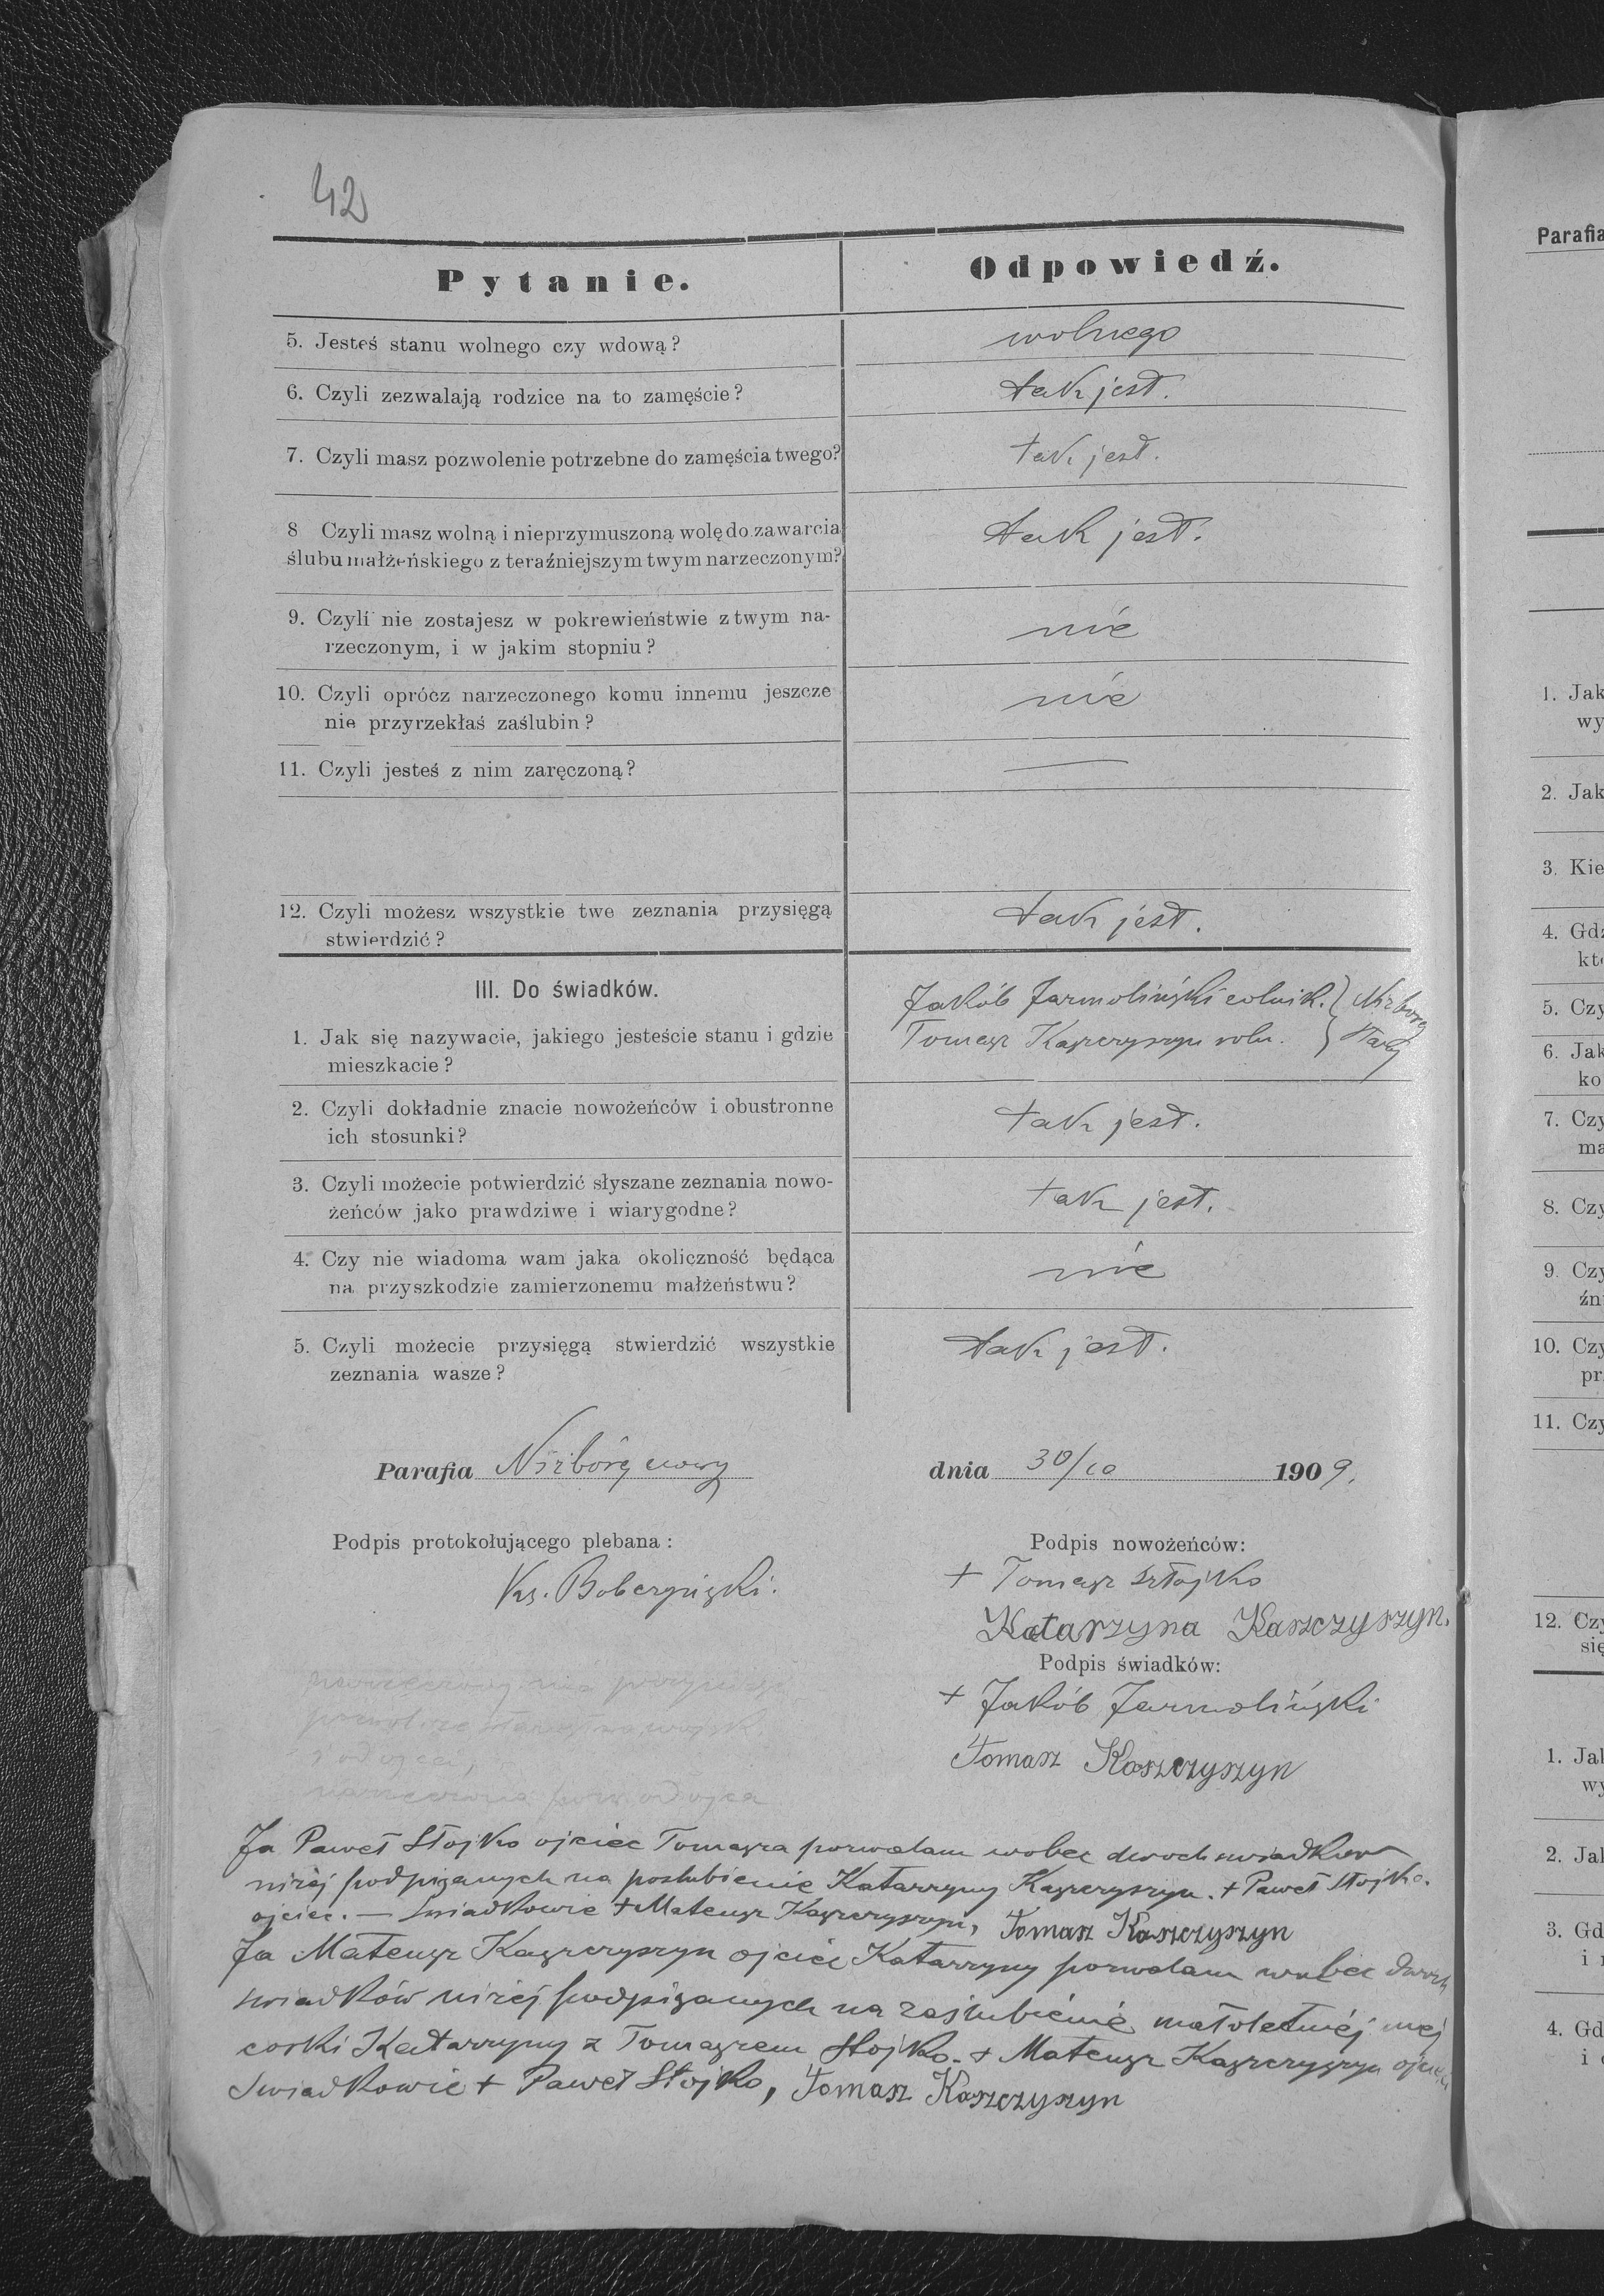 42
Pytanie. Odpowiedź.
5. Jesteś stanu wolnego czy wdową? wolnego
6. Czyli zezwalają rodzice na to zamęście? tak jest.
7. Czyli masz pozwolenie potrzebne do zamęścia twego? tak jest.
8 Czyli masz wolną i nieprzymuszoną wolę do zawarcia
ślubu małżeńskiego z teraźniejszym twym narzeczonym? tak jest.
9. Czyli nie zostajesz w pokrewieństwie z twym na-
rzeczonym, i w jakim stopniu? nie
10. Czyli oprócz narzeczonego komu innemu jeszcze
nie przyrzekłaś zaślubin? nie
11. Czyli jesteś z nim zaręczoną? —
12. Czyli możesz wszystkie twe zeznania przysięgą
stwierdzić? tak jest.
III. Do świadków.
1. Jak się nazywacie, jakiego jesteście stanu i gdzie
mieszkacie?
Jakób Jarmoliński rolnik. } Niżborg
Tomasz Kaszczyszyn roln. } Stary
2. Czyli dokładnie znacie nowożeńców i obustronne
ich stosunki? tak jest.
3. Czyli możecie potwierdzić słyszane zeznania nowo-
żeńców jako prawdziwe i wiarygodne? tak jest.
4. Czy nie wiadoma wam jaka okoliczność będąca
na przyszkodzie zamierzonemu małżeństwu? nie
5. Czyli możecie przysięgą stwierdzić wszystkie
zeznania wasze? tak jest.
Parafia Niżborg nowy dnia 30/10 1909.
Podpis protokołującego plebana: Podpis nowożeńców:
Ks. + Tomasz Stojko
Katarzyna Kaszczyszyn.
Podpis świadków:
+ Jakób Jarmoliński
Tomasz Kaszczyszyn
Ja Paweł Stojko ojciec Tomasza pozwalam wobec dwoch swiadkow
niżej podpisanych na poslubienie Katarzyny Kaszczyszyn. + Paweł Stojko.
ojciec. — Swiadkowie + Mateusz Kaszczyszyn, Tomasz Kaszczyszyn
Ja Mateusz Kaszczyszyn ojciec Katarzyny pozwalam wobec dwoch
swiadków niżej podpisanych na zaślubienie małoletniéj mej
corki Katarzyny z Tomaszem Stojko. + Mateusz Kaszczyszyn ojciec
Swiadkowie + Paweł Stojko, Tomasz Kaszczyszyn
Parafia
1. Jak
wy
2. Jak
3. Kie
4. Gdz
kt
5. Czy
6. Jak
ko
7. Czy
ma
8. Czy
9. Czy
źn
10. Czy
pr
11. Czy
12. Czy
się
1. Jak
wy
2. Jak
3. Gd
i
4. Gd
i